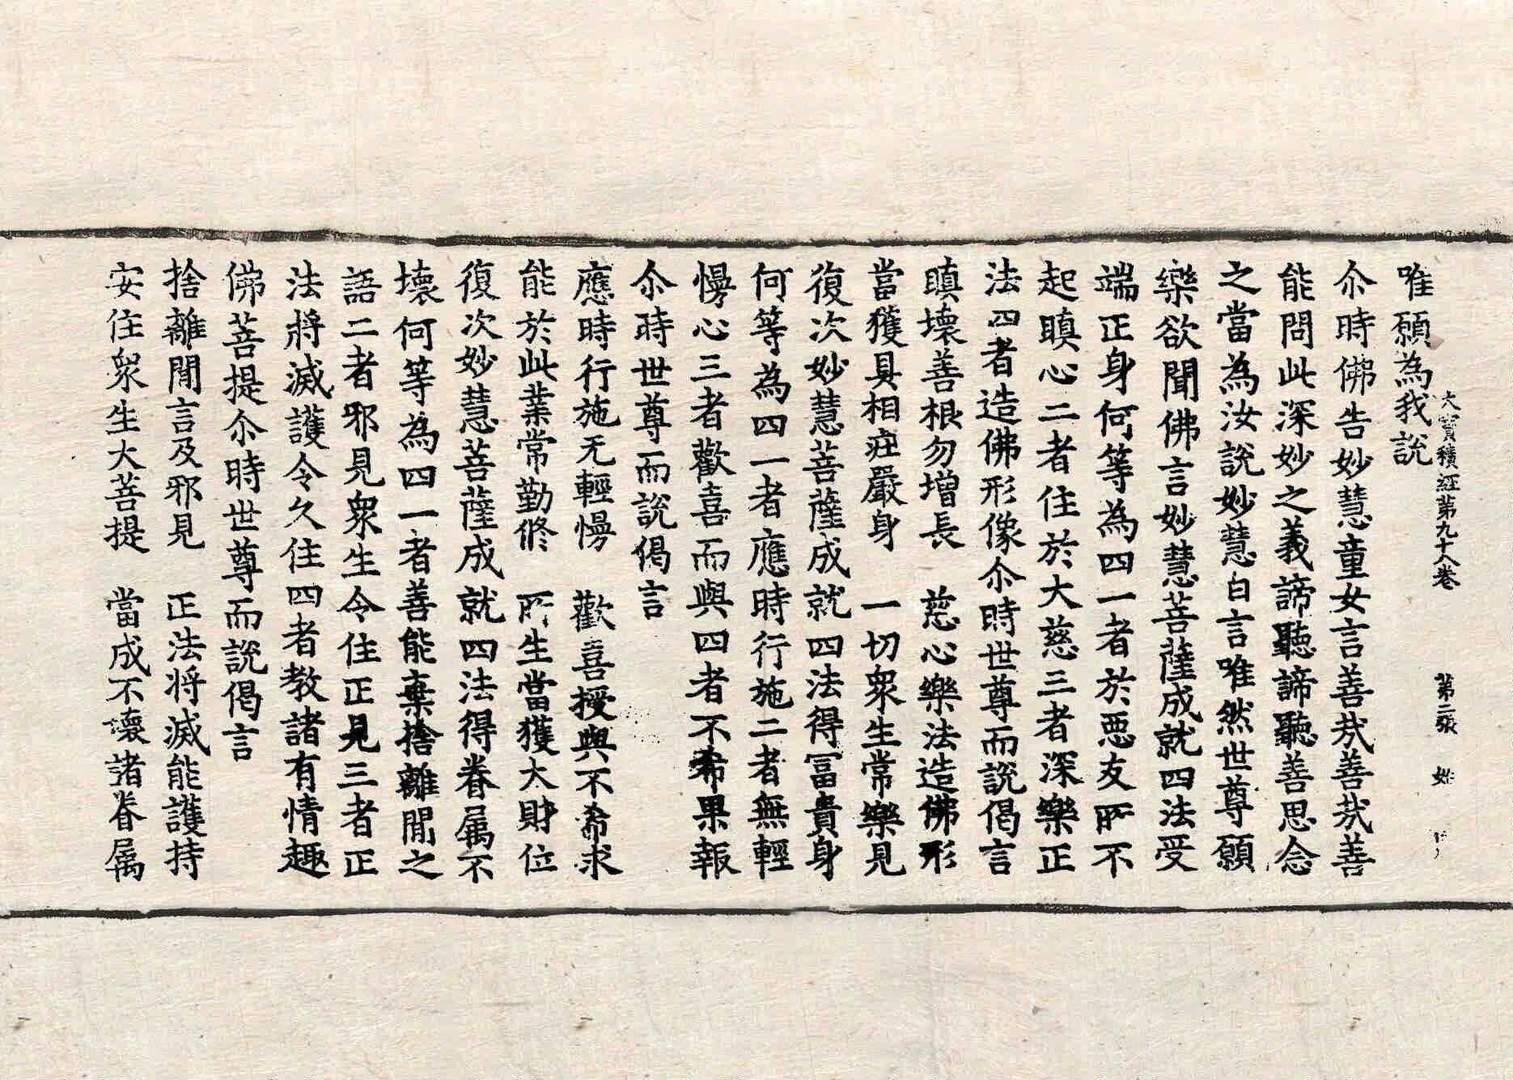 大寶積經第九十八卷 第二張
唯願為我說
尒時佛告妙慧童女言善㢤善㢤善
能問此深妙之義諦聽諦聽善思念
之當為汝說妙慧白言唯然世尊願
樂欲聞佛言妙慧菩薩成就四法受
端正身何等為四一者於惡友所不
起瞋心二者住於大慈三者深樂正
法四者造佛形像尒時世尊而說偈言
瞋壞善根勿增長　慈心樂法造佛形
當獲具相莊嚴身　一切眾生常樂見
復次妙慧菩薩成就四法得冨貴身
何等為四一者應時行施二者無輕
慢心三者歡喜而與四者不希果報
尒時世尊而說偈言
應時行施无輕慢　歡喜授與不希求
能於此業常勤修　所生當獲大財位
復次妙慧菩薩成就四法得眷属不
壞何等為四一者善能棄捨離間之
語二者邪見眾生令住正見三者正
法將滅護令久住四者教諸有情趣
佛菩提尒時世尊而說偈言
捨離間言及邪見　正法將滅能護持
安住眾生大菩提　當成不壞諸眷属